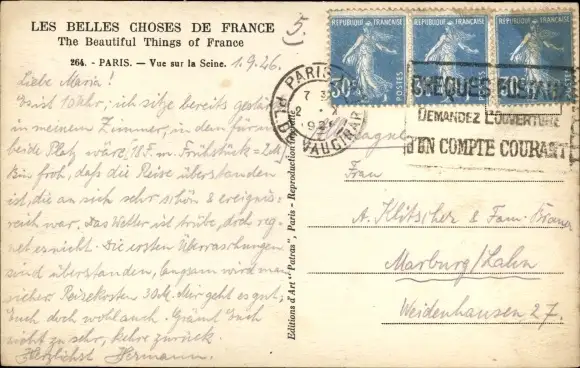 LES BELLES CHOSES DE FRANCE
The Beautiful Things of France
264. - PARIS. — Vue sur la Seine. 1.9.26.
Liebe Maria!
Es ist 10 Uhr; ich sitze bereits
in meinem Zimmer, in dem für
beide Platz wäre. 18 F. m. Frühstück = 2 M
Bin froh, daß die Reise überstanden
ist, die an sich sehr schön & ereignis-
reich war. Das Wetter ist trübe, doch reg-
net es nicht. Die ersten Überraschungen
sind überstanden, langsam wird man
sicher. Reisekosten 30 M. Mir geht es gut,
Euch doch wohl auch. Grämt Euch
nicht zu sehr, kehre zurück.
Herzlichst Hermann.
Editions d'Art "Patras", Paris - Reproduction
5
REPUBLIQUE FRANÇAISE
REPUBLIQUE FRANÇAISE
REPUBLIQUE FRANÇAISE
30c
POSTES
POSTES
30c
POSTES
PARIS
7 3
VAUGIRARD
CHEQUES POSTAUX
DEMANDEZ L'OUVERTURE
d'UN COMPTE COURANT
Frau
A. Klitscher & Fam.
Marburg/Lahn
Weidenhausen 27.